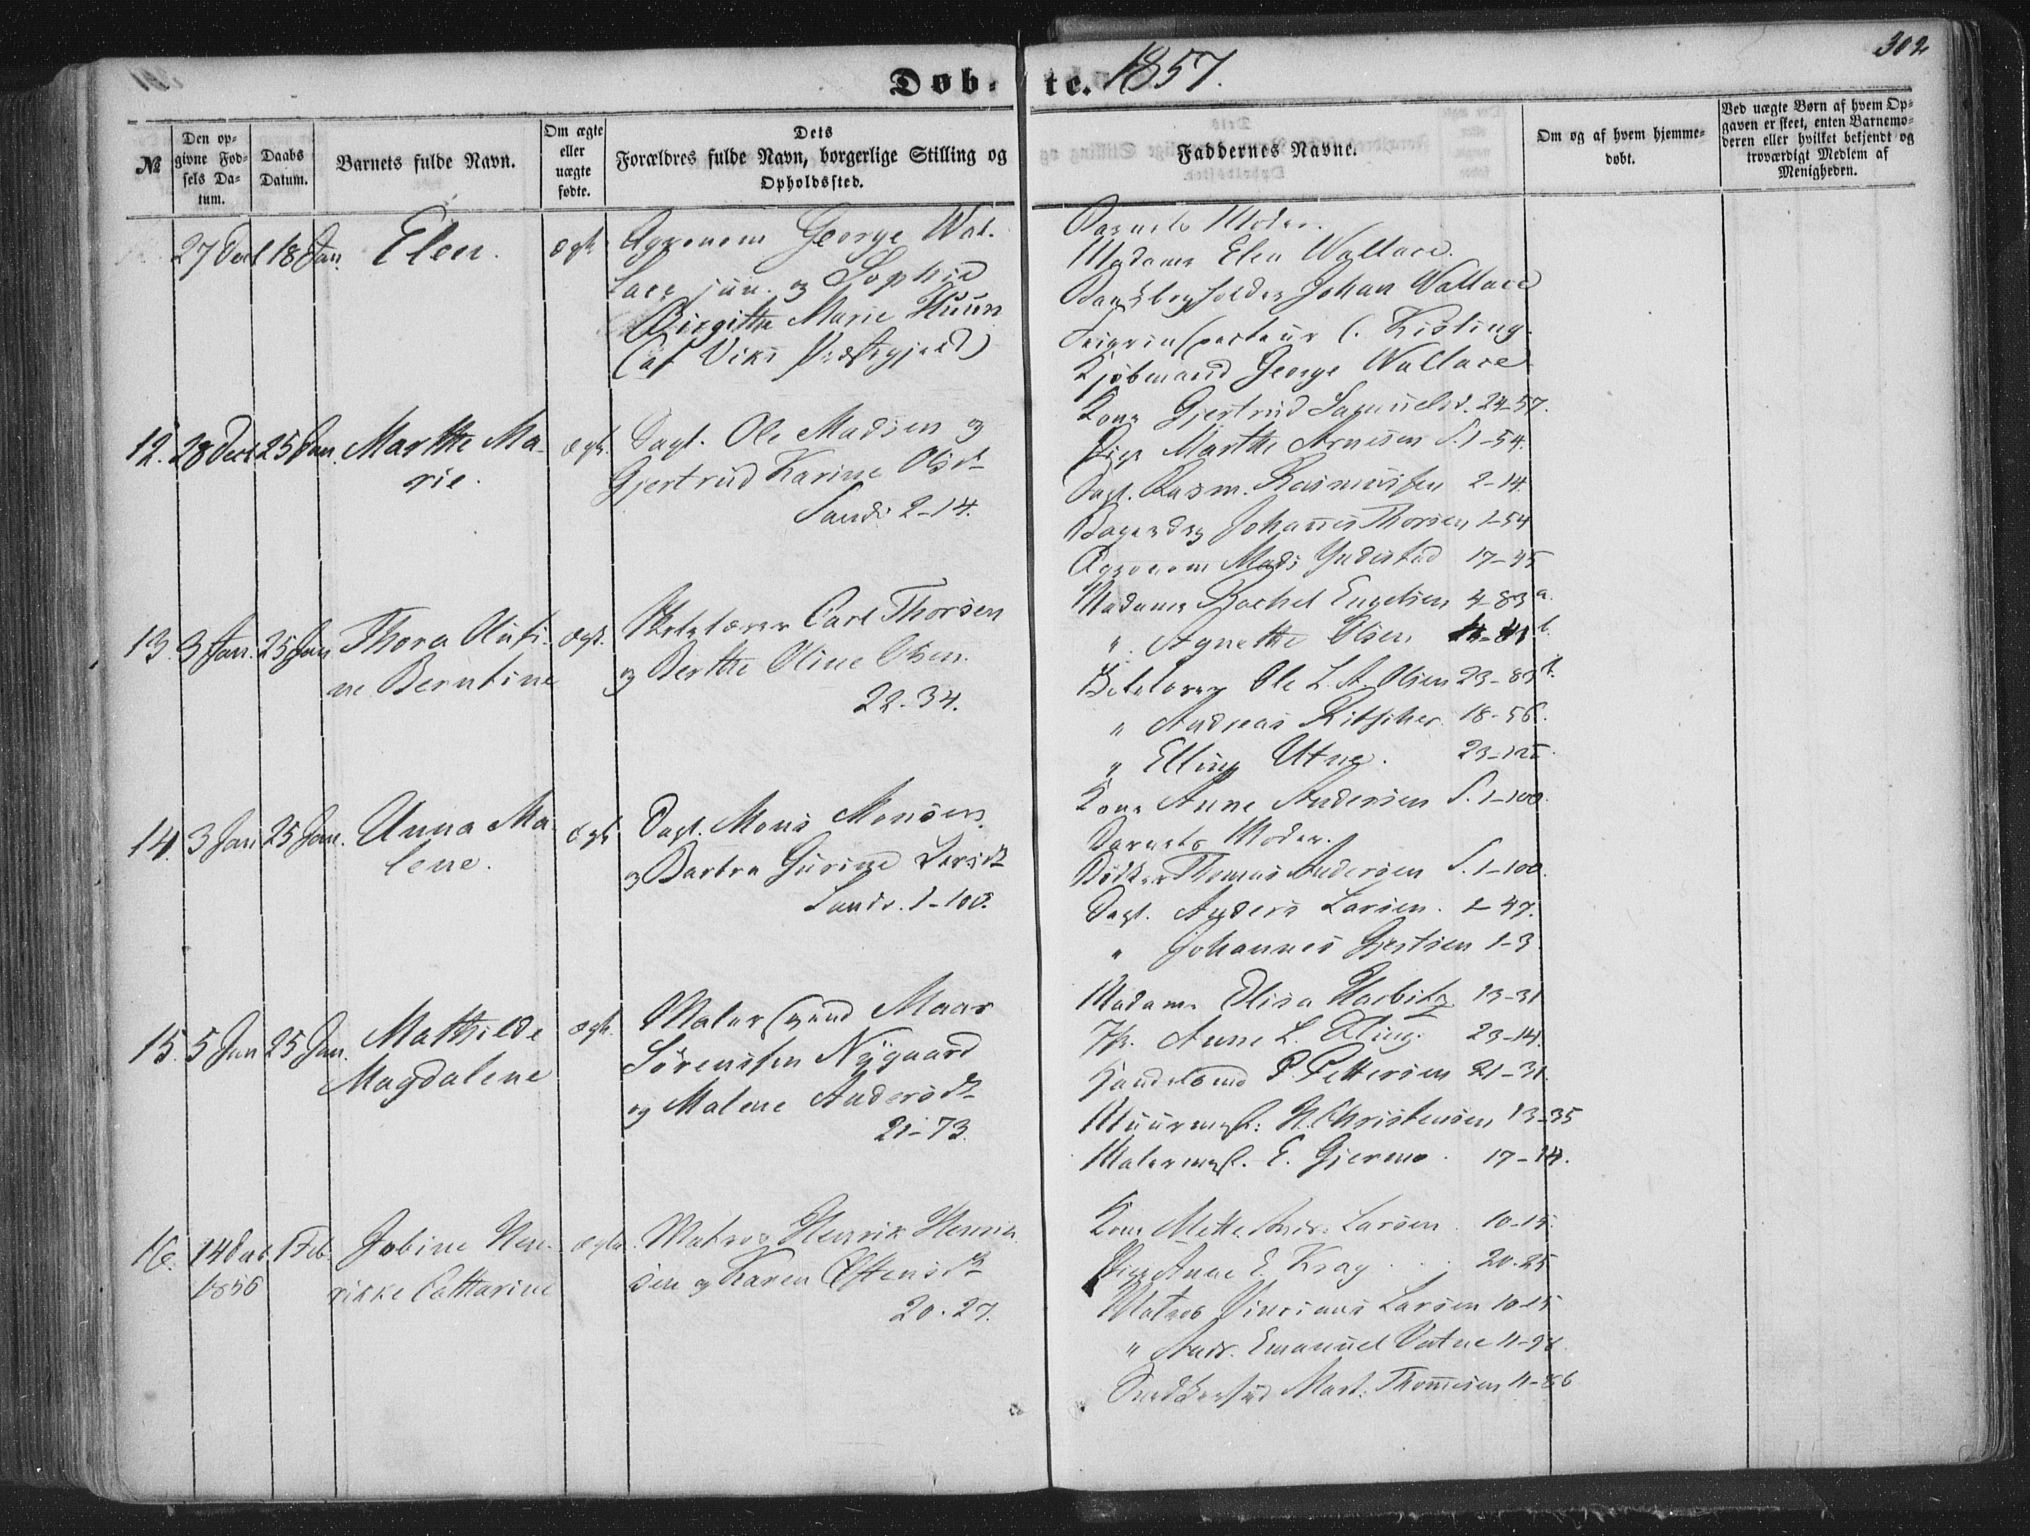 Døb- te. 1857.
302
№
Den op-
givne Fød-
sels Da-
tum.
Daabs
Datum.
Barnets fulde Navn.
Om ægte
eller
uægte
fødte.
Dets
Forældres fulde Navn, borgerlige Stilling og
Opholdssted.
Faddernes Navne.
Om og af hvem hjemme-
døbt.
Ved uægte Børn af hvem Op-
gaven er skeet, enten Barnemo-
deren eller hvilket bekjendt og
troværdigt Medlem af
Menigheden.
27 Decb 18 Jan. Elen. ægte
Agronom George Wal-
lace jun. og Sophie
Birgitte Marie Huun
(af Viks Præstegjeld)
Barnets Moder.
Madame Elen Wallace.
Johan Wallace
C. Kisling
Kjøbmand George Wallace
12. 28 Decb 25 Jan. Marthe Ma-
rie.
ægte
Dagl. Ole Madsen og
Gjertrud Karine Olsdr
Sandv. 2-14.
Kone Gjertrud Samuelsd. 24-57.
Pige Marthe Arnesen S. 1-54.
Dagl. Rasm. Rasmussen 2-14.
Johannes Thorsen 1-54
Agronom Mads Yndestad 17-45
13. 3 Jan. 25 Jan Thora Outi-
ne Berntine
ægte
Carl Thorsen
og Berthe Oline Olsen.
22-34.
Madame Rachel Engelsen 4-83 a.
" Agnethe Olsen
Ole L. A. Olsen 23-83 b.
" Andreas Kitscher 18-56.
" Elling Utne. 23-125.
14. 3 Jan 25 Jan. Anna Ma-
lene.
ægte
Dagl. Mons Monsen
og Barbra Gurine Larsdr
Sandv. 1-100.
Kone Anne Andersen S. 1-100.
Barnets Moder.
Bødker Thomas Andersen S. 1-100.
Dagl. Anders Larsen. 1-47.
" Johannes Gjertsen 1-3
15. 5 Jan 25 Jan. Mathilde
Magdalene
ægte
Malersvend Maar
Sørensen Nygaard
og Malene Andersdr
21-73.
Madame Elisa Harbitz 13-31
Anne L. Elling. 23-14.
Handelsmd P. Pettersen 21-31.
Muurmest: N. Christensen 13-35
Malermest. E. Gjermo. 17-14.
16. 14 Decb 1 Feb. Jobine Hen-
1856
rikke Catharine
ægte
Matros Henrik Henrik-
sen og Karen Estensdr
20-27.
Kone Mette Andr. Larsen. 10-15.
Pige Anne E. Krag 20-25
Matros Vincians Larsen 10-15
" Andr. Emanuel Vatne 4-96.
Snedkersvd Mart. Thomesen 4-86